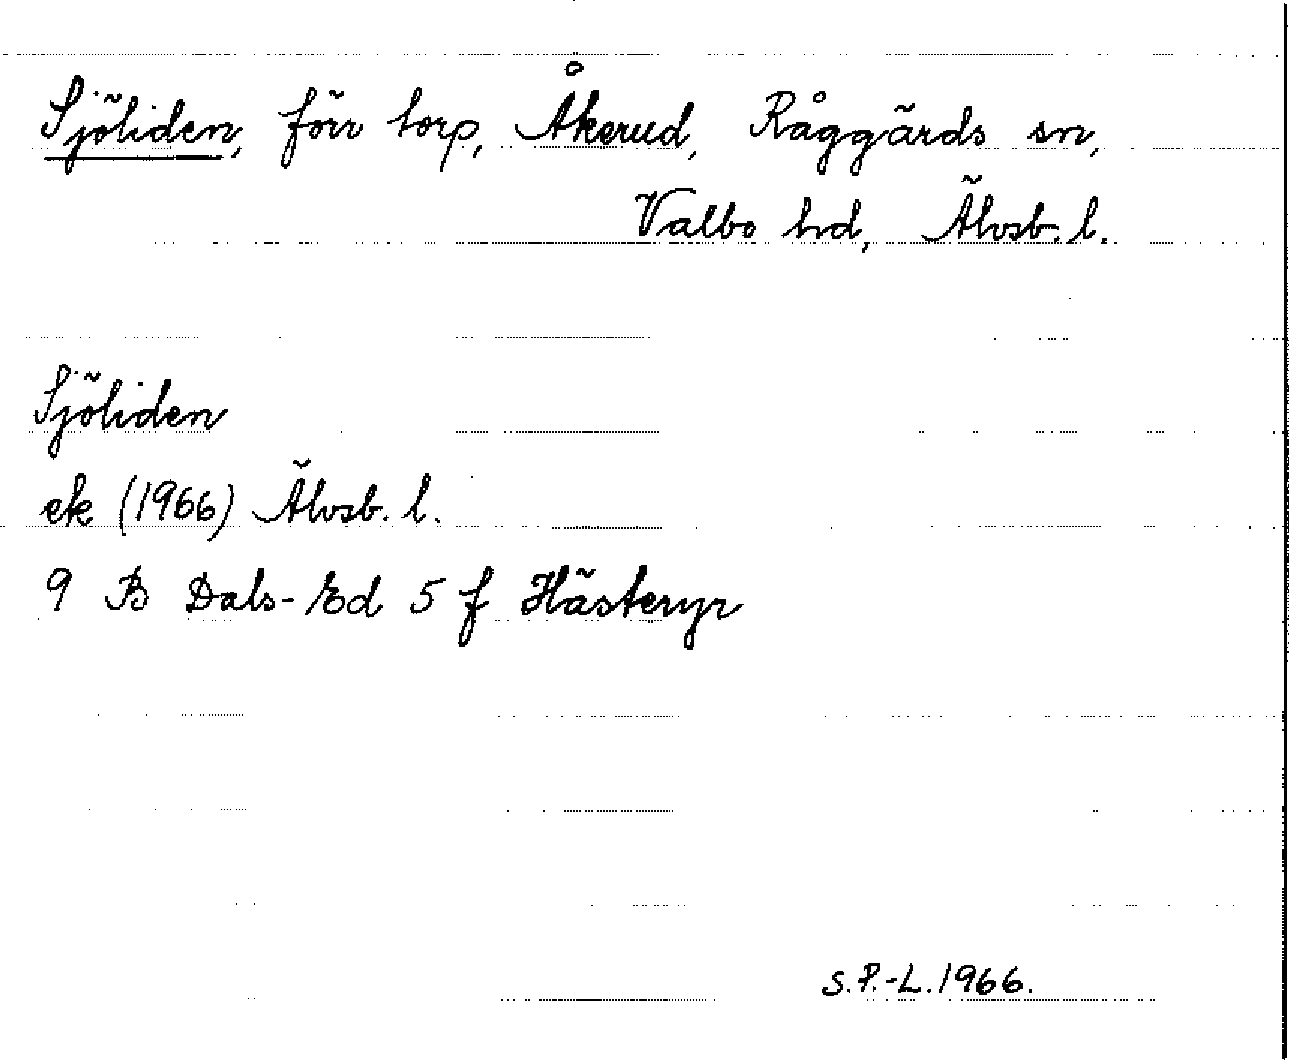 Sjöliden, förr torp, Åkerud, Råggärds sn,
Valbo hd, Älvsb. l.
Sjöliden
ek (1966) Älvsb. l.
9 B Dals-Ed 5 f Hästeryr
S.P.-L. 1966.